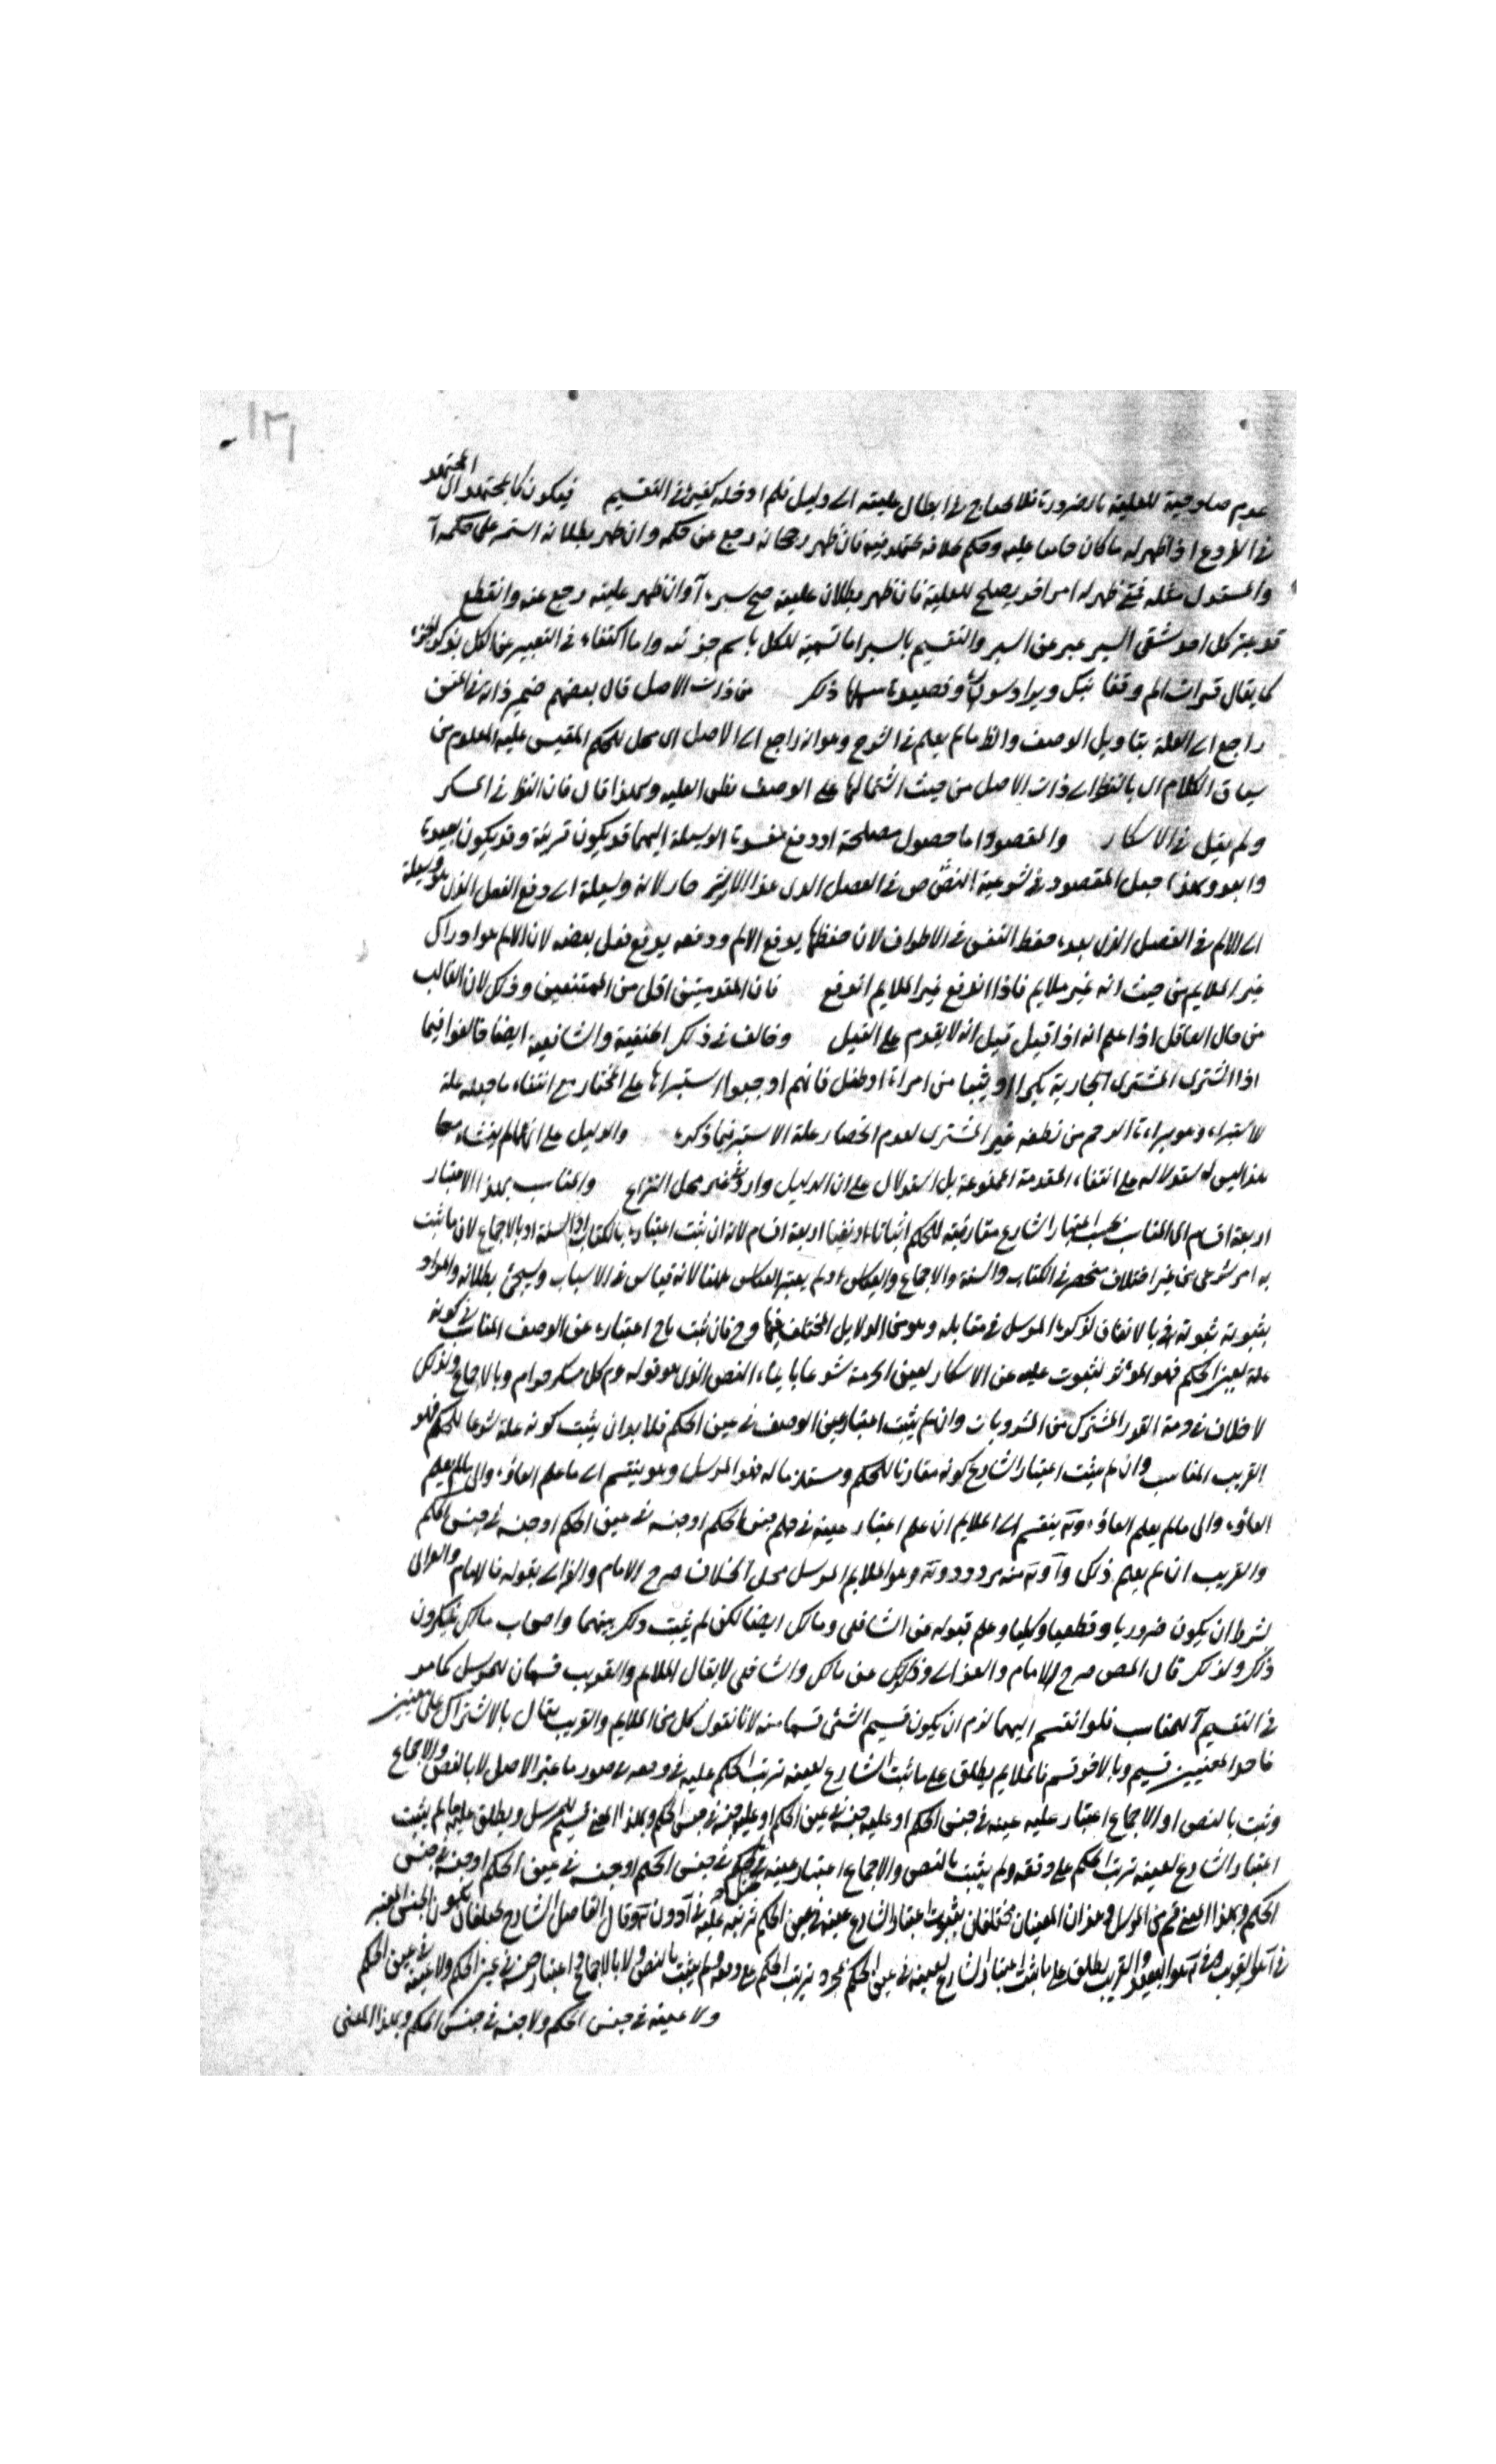 ١٣١
عدم صلوحية للعلية بالضرورة فلا يحتاج في ابطال عليته الى دليل فلم ادخله كغيره في التقسيم فيكون كالمجتهد المجتهد
في الفروع اذا ظهر له ما كان حاكما عليه وحكم بخلافه مجتهد فيه فان ظهر رجحانه رجع عن حكمه وان ظهر بطلانه استمر على حكمه آ
والمستدل مثله فمتى ظهر له امر اخر يصلح للعلية فان ظهر بطلان عليته صح سبره آ وان ظهر عليته رجع عنه وانقطع
كل احد شقى السبر عبر عن السبر والتقسيم بالسبر اما تسمية للكل باسم جزئه واما اكتفاء في التعبير عن الكل بذكر الجزء
كما يقال قرات الم وقفا نبك ويراد سورة وقصيدة ذكر من ذات الاصل قال بعضهم ضمير ذاته في المتن
راجع الى العلة بتاويل الوصف والظ ما لم يعلم في الشرح وهو انه راجع الى الاصل اى محل الحكم المقيس عليه المعلوم من
سياق الكلام اى بالنظر الى ذات الاصل من حيث اشتمالها على الوصف يظن العلية ولهذا قال فان النظر في المسكر
ولم يقل في الاسكار والمقصود اما حصول مصلحة او دفع مفسدة الوسيلة اليهما قد يكون قريبة وقد يكون بعيدة
وابعد ولهذا جعل المقصود في شرعية القصاص في الفصل الذى هذا لانه وسيلة الى دفع الفعل الذى هو وسيلة
الى الالم في الفصل الذى بعده حفظ النفس في الاطراف لان حفظها يدفع الالم ودفعه يدفع فعل بعضه لان الالم هو ادراك
غير الملايم من حيث انه غير ملايم فاذا اندفع غير الملايم اندفع فان المقدمين اقل من الممتنعين وذلك لان الغالب
من حال العاقل اذا علم انه اذا قتل قتل انه لا يقدم على القتل وخالف في ذلك الحنفية والشافعية ايضا خالفوا فيما
اذا اشترى المشترى الجارية بكرا او ثيبا من امراة او طفل فانهم اوجبوا استبراءها على المختار مع انتفاء ما جعله علة
للاستبراء وهو براءة الرحم من نطفة غير المشترى لعدم انحصار علة الاستبراء فيما ذكره والدليل على انها لم ينشاء معا
هذا ليس استدلاله على انتفاء المقدمة الممنوعة بل استدلال على ان الدليل وارد في غير محل النزاع والمناسب بهذا الاعتبار
اربعة اقسام اى المناسب بحسب اعتبار الشارع مقارنته للحكم اثباتا او نفيا اربعة اقسام لانه ان ثبت اعتباره بالكتاب او السنة او بالاجماع لان ما ثبت
به امر شرعى من غير اختلاف منحصر في الكتاب والسنة والاجماع والقياس ولم يعتبر القياس ههنا لانه قياس في الاسباب وسيجئ بطلانه والمراد
بثبوته ثبوته بالاتفاق لذكره المرسل في مقابله وهو من الدلايل المختلف فيها وح فان ثبت باح اعتباره عن الوصف المناسب في كونه
علة لعين الحكم فهو المؤثر لثبوت علية عن الاسكار لعين الحرمة شرعا بايماء النص الذى هو قوله عم كل مسكر حرام وبالاجماع ولذلك
لا خلاف في حرمة القدر المشترك من المشروبات وان لم يثبت اعتبار عين الوصف في عين الحكم فلا بد ان يثبت كونه علة شرعا للحكم فهو
القريب المناسب وان لم يثبت اعتبار الشارع كونه مقارنا للحكم ومستلزما له فهو المرسل وهو ينقسم الى ما علم الغاؤه والى ما لم يعلم
الغاؤه والى ما لم يعلم الغاؤه وته ينقسم الى الملايم ان علم اعتبار عينه في جنس الحكم او جنسه في عين الحكم او جنسه في جنس الحكم
والقريب ان لم يعلم ذلك وآ وته منه مردود وته وهو الملايم المرسل محل الخلاف صرح الامام والغزالى بقوله فالامام والغزالى
بشرط ان يكون ضروريا وقطعيا وكليا وعلم قبوله عن الشافعى ومالك ايضا لكن لم يثبت ذلك بينهما واصحاب مالك ينكرون
ذلك ولذلك قال المص صرح الامام والغزالى وذلك عن مالك والشافعى لا يقال الملايم والقريب قسمان للمرسل كما هو
في التقسيم آ للمناسب فلو انقسم اليهما لزم ان يكون قسيم الشئ قسما منه لانا نقول كل من الملايم والقريب يقال بالاشتراك على معنيين
فاحد المعنيين قسيم وبالاخر قسم فالملايم يطلق على ما ثبت الشارع لعينه ترتب الحكم عليه في وصف ما غير الاصل لا بالنص والاجماع
وثبت بالنص او الاجماع اعتبار علية عينه في جنس الحكم او علية جنسه في عين الحكم او علية جنسه في جنس الحكم وبهذا المعنى قسيم للمرسل ويطلق على ما لم يثبت
اعتبار الشارع لعينه ترتب الحكم على وفقه ولم يثبت بالنص والاجماع اعتبار عينه في جنس الحكم او جنسه في عين الحكم او جنسه في جنس
الحكم وبهذا المعنى قسم من المرسل وهذان المعنيان مختلفان بثبوت اعتبار الشارع عينه في عين الحكم ترتبه عليه في آ دون ته وقال الفاضل الشارح يختلفان بكون الجنس المعتبر
في آ هو القريب وفي ته هو البعيد والقريب يطلق على ما ثبت اعتبار الشارع لعينه في عين الحكم بمجرد ترتب الحكم على وفقه ولم يثبت بالنص ولا بالاجماع اعتبار جنسه في عين الحكم ولا عينه في عين الحكم
ولا عينه في جنس الحكم ولا جنسه في جنس الحكم وبهذا المعنى